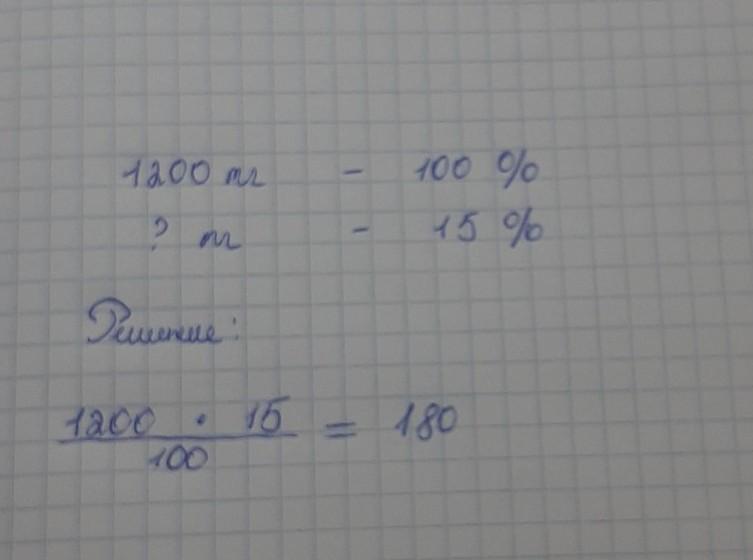 1200 т - 100 %
? т - 15 %
Решение:
1200 · 15 / 100 = 180